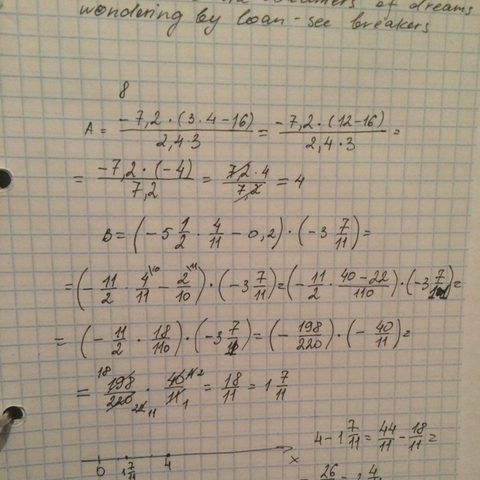 wondering by loan-see breakers
8
A = -7,2·(3·4-16) / 2,4·3 = -7,2·(12-16) / 2,4·3 =
= -7,2·(-4) / 7,2 = 7,2·4 / 7,2 = 4
B = (-5 1/2 · 4/11 - 0,2)·(-3 7/11) =
= (-11/2 · 4/11 \10 - 2/10 \11)·(-3 7/11) = (-11/2 · 40-22/110)·(-3 7/11) =
= (-11/2 · 18/110)·(-3 7/11) = (-198/220)·(-40/11) =
= 18 198/220 22 11 · 40 2/11 1 = 18/11 = 1 7/11
4 - 1 7/11 = 44/11 - 18/11 =
0 1 7/11 4 x
= 26